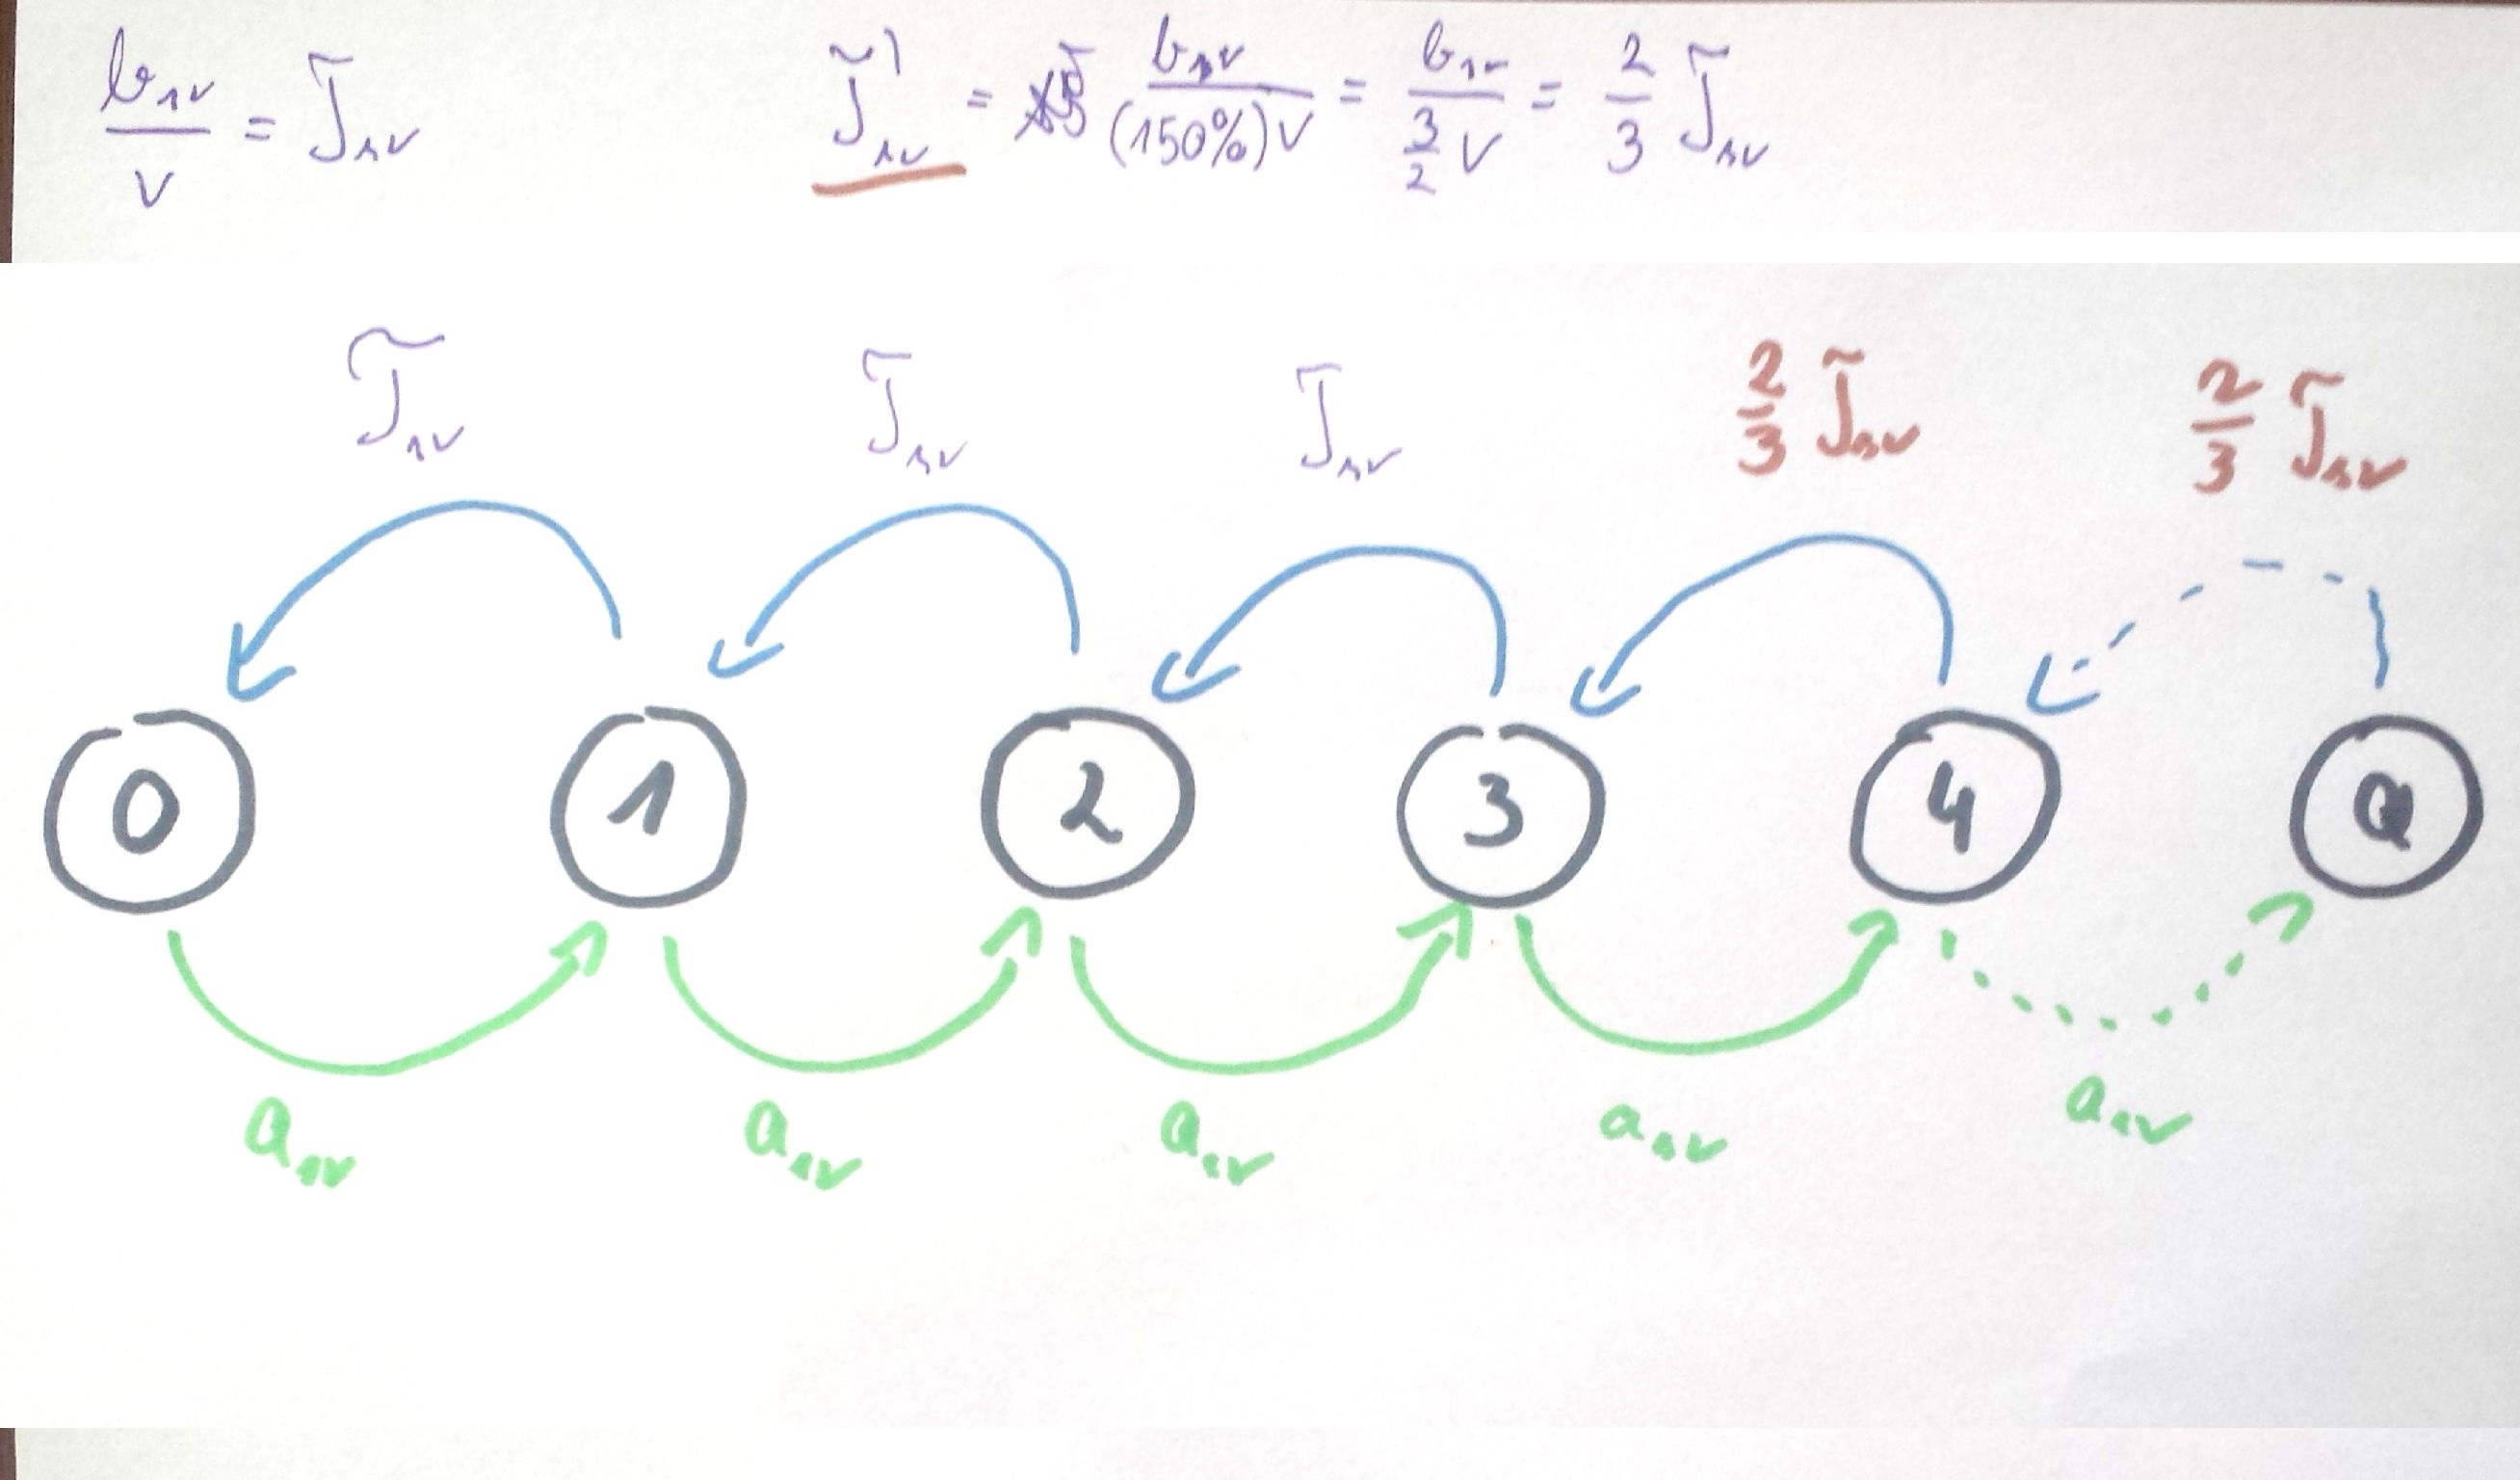 b₁ᵥ / v = T̃₁ᵥ
T̃'₁ᵥ = b₁ᵥ / (150%)v = b₁ᵥ / (3/2 v) = 2/3 T̃₁ᵥ
T̃₁ᵥ T̃₁ᵥ T̃₁ᵥ 2/3 T̃₁ᵥ 2/3 T̃₁ᵥ
0 1 2 3 4 Q
a₁ᵥ a₁ᵥ a₁ᵥ a₁ᵥ a₁ᵥ